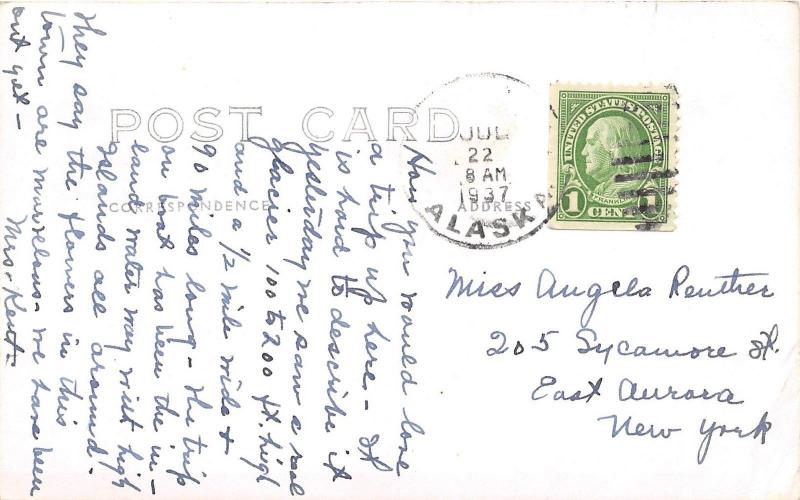 POST CARD
CORRESPONDENCE
ADDRESS
JUL
22
8 AM
1937
ALASKA
UNITED STATES POSTAGE
1
FRANKLIN
CENT
1
Miss Angela Reuther
205 Sycamore St.
East Aurora
New York
How you would love
a trip up here - It
is hard to describe it
yesterday we saw a real
glacier 100 to 200 ft. high
and a 1/2 mile wide &
90 miles long - The trip
on boat has been the in-
land water way with high
islands all around.
They say the flowers in this
town are marvelous - we have been
out yet -
Mrs. Kent -